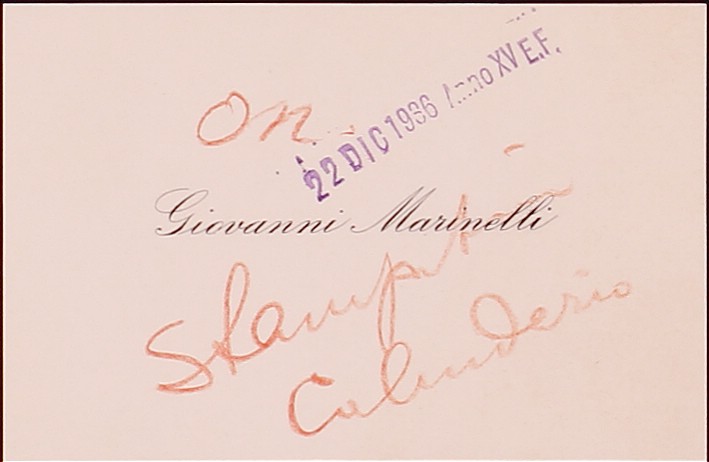 On.
22 DIC 1936 Anno XV E.F.
Giovanni Marinelli
Calendario